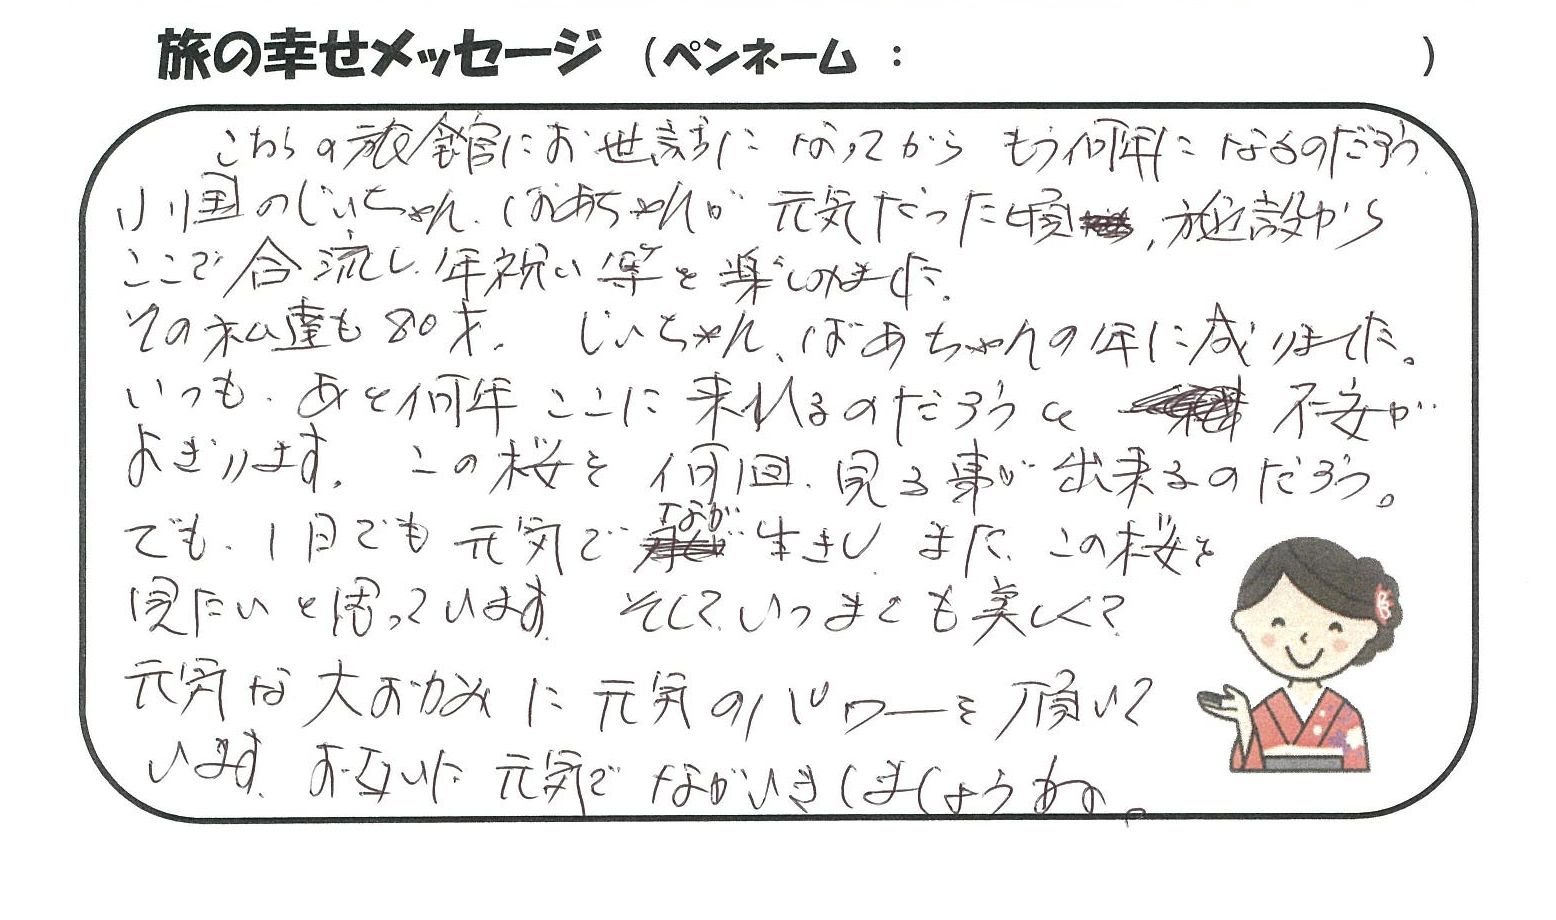 旅の幸せメッセージ （ペンネーム：　　　　　）
こちらの旅館にお世話になってから もう何年になるのだろう
小国のじいちゃん、ばあちゃんが 元気だった頃、施設から
ここで合流し、年祝い等を楽しみました。
その私達も80才。 じいちゃん、ばあちゃんの年に成りました。
いつも、あと何年 ここに来れるのだろうと 不安が
よぎります。 この桜を 何回、見る事が出来るのだろう。
でも、1日でも 元気で なが 生きし また、この桜を
見たいと思っています。 そして、いつまでも美しくて
元気な 大おかみに 元気のパワーを 頂いて
います。お互いに 元気で ながいきしましょうね。